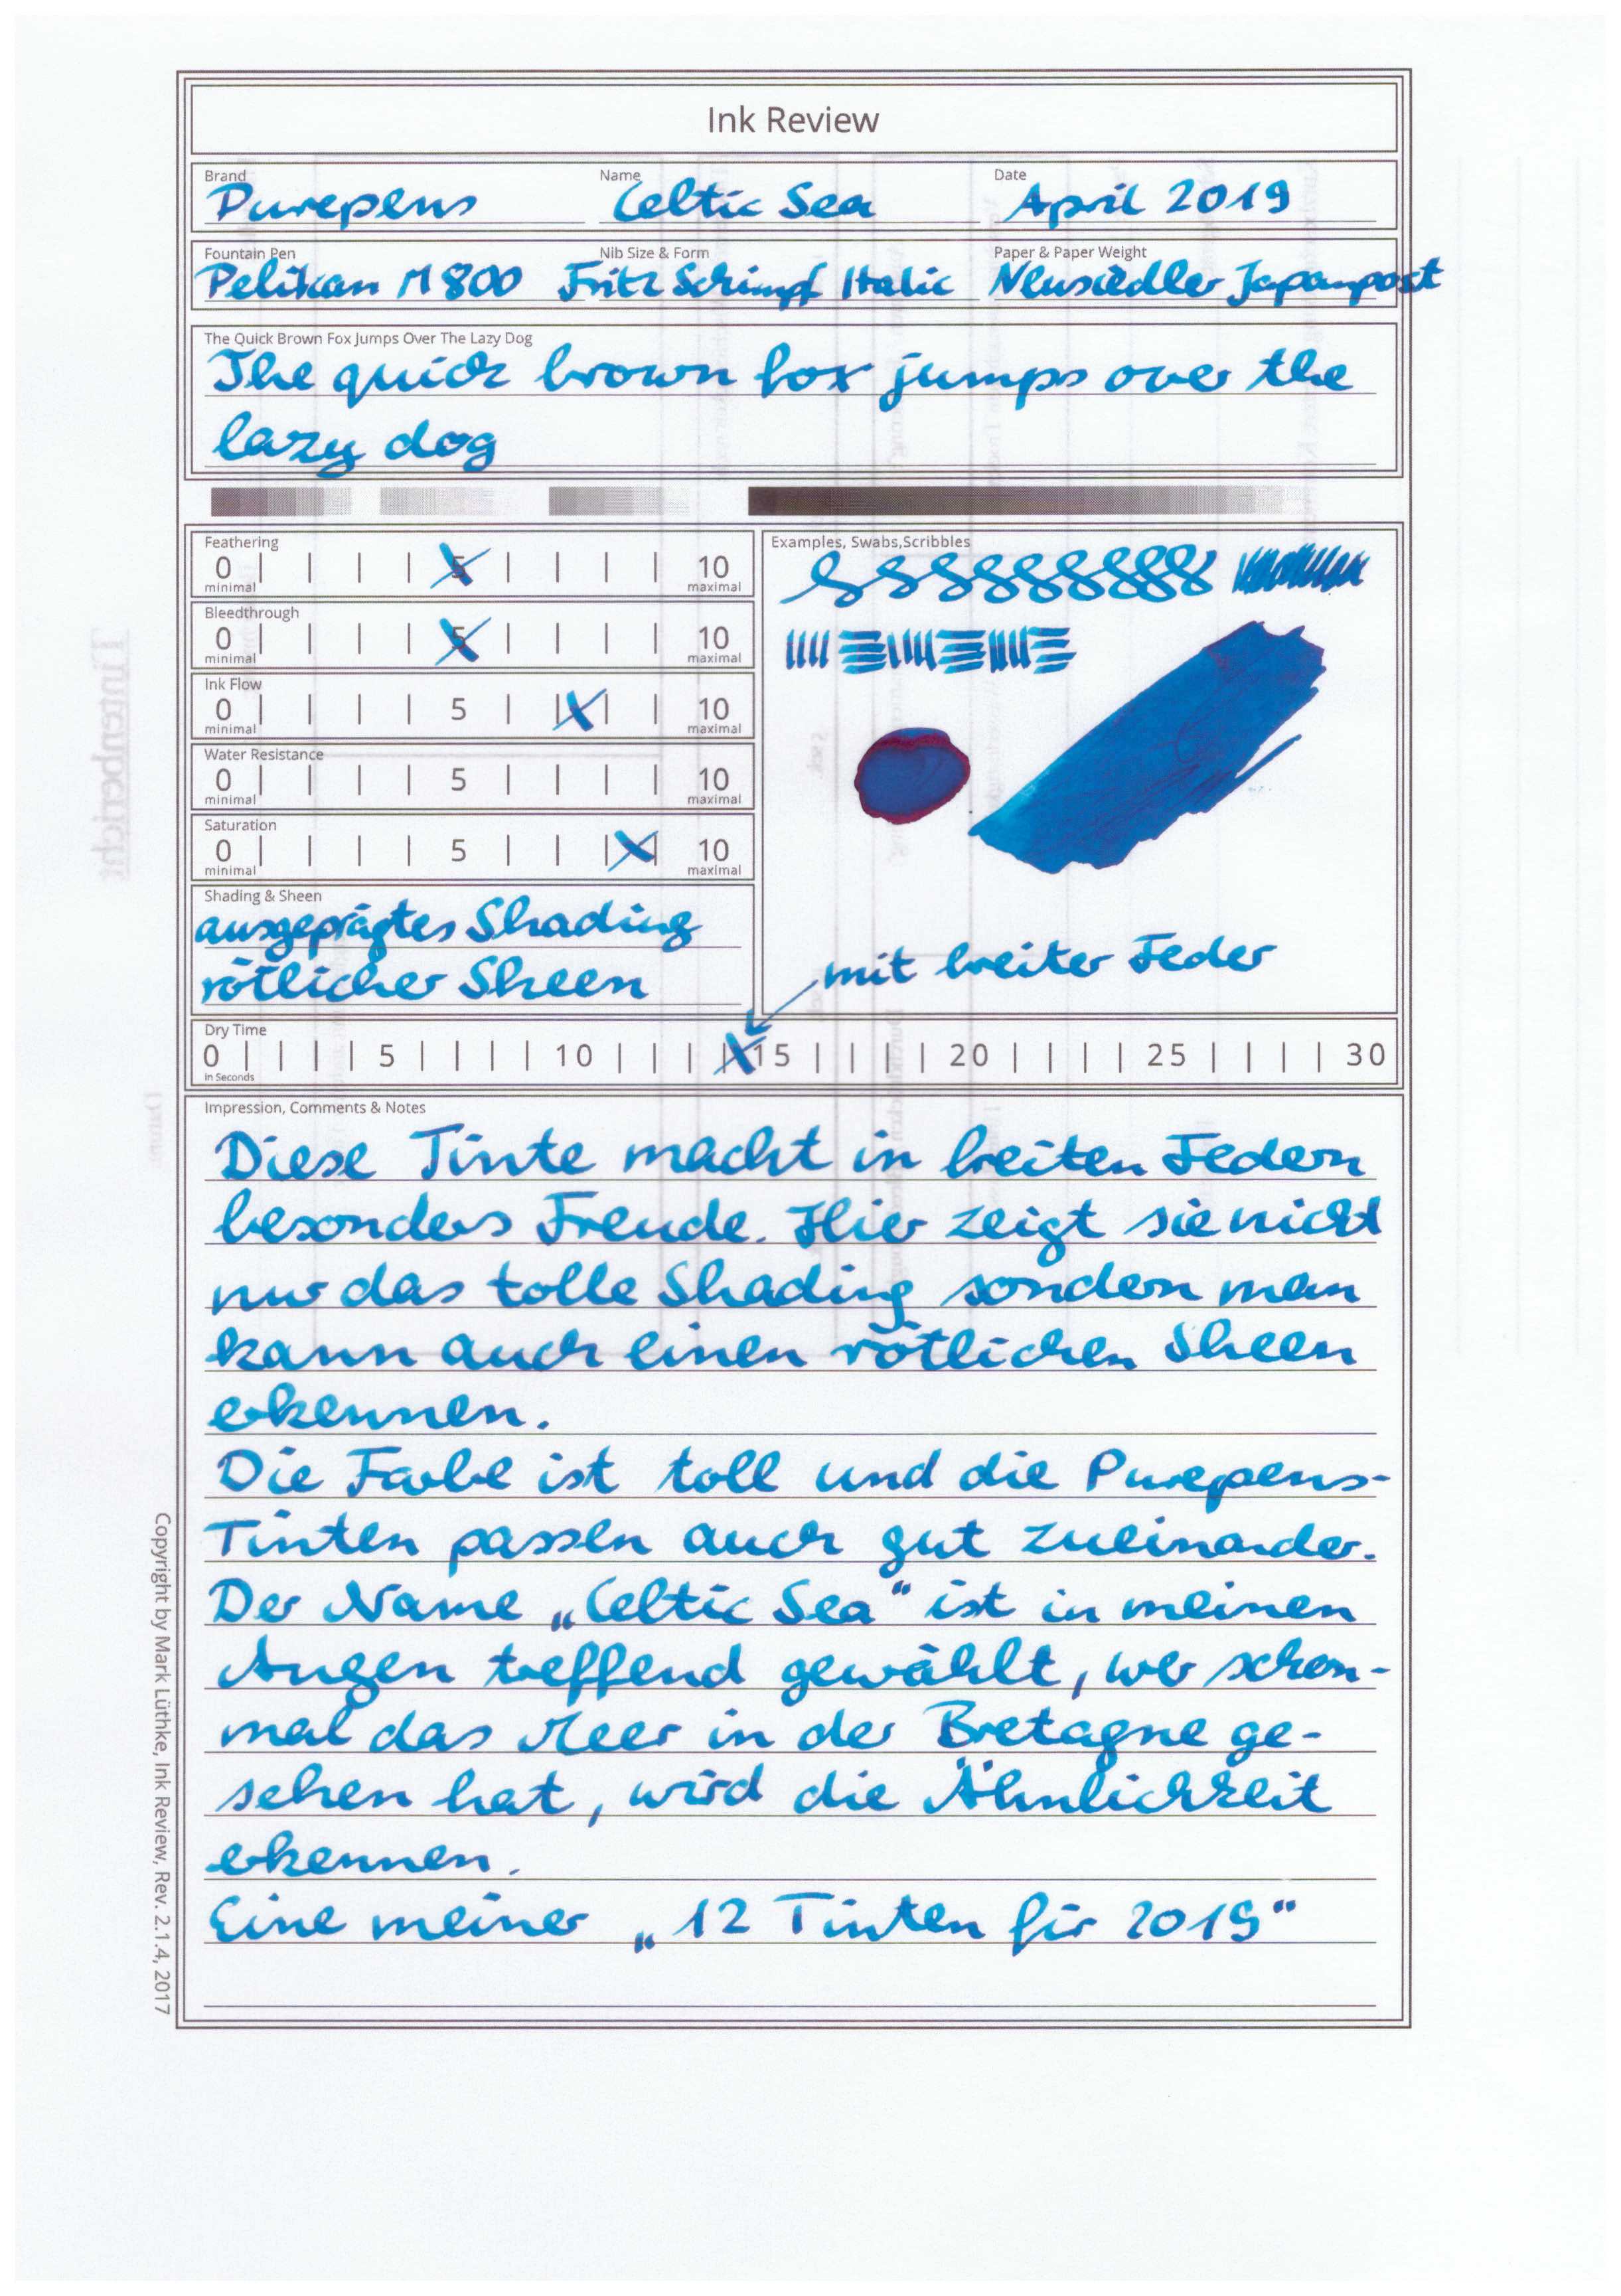 Ink Review
Brand Name Date
Purepens Celtic Sea April 2019
Fountain Pen Nib Size & Form Paper & Paper Weight
Pelikan M800 Fritz Schimpf Italic Neusiedler Japanpost
The Quick Brown Fox Jumps Over The Lazy Dog
The quick brown fox jumps over the
lazy dog
Feathering
0 5 10
minimal maximal
Bleedthrough
0 5 10
minimal maximal
Ink Flow
0 5 10
minimal maximal
Water Resistance
0 5 10
minimal maximal
Saturation
0 5 10
minimal maximal
Shading & Sheen
ausgeprägtes Shading
rötlicher Sheen
Examples, Swabs,Scribbles
mit breiter Feder
Dry Time
0 5 10 15 20 25 30
in Seconds
Impression, Comments & Notes
Diese Tinte macht in breiten Federn
besonders Freude. Hier zeigt sie nicht
nur das tolle Shading sondern man
kann auch einen rötlichen Sheen
erkennen.
Die Farbe ist toll und die Purepens-
Tinten passen auch gut zueinander.
Der Name „Celtic Sea“ ist in meinen
Augen treffend gewählt, wer schon-
mal das Meer in der Bretagne ge-
sehen hat, wird die Ähnlichkeit
erkennen.
Eine meiner „12 Tinten für 2019“
Copyright by Mark Lüthke, Ink Review, Rev. 2.1.4, 2017
Tintenbericht